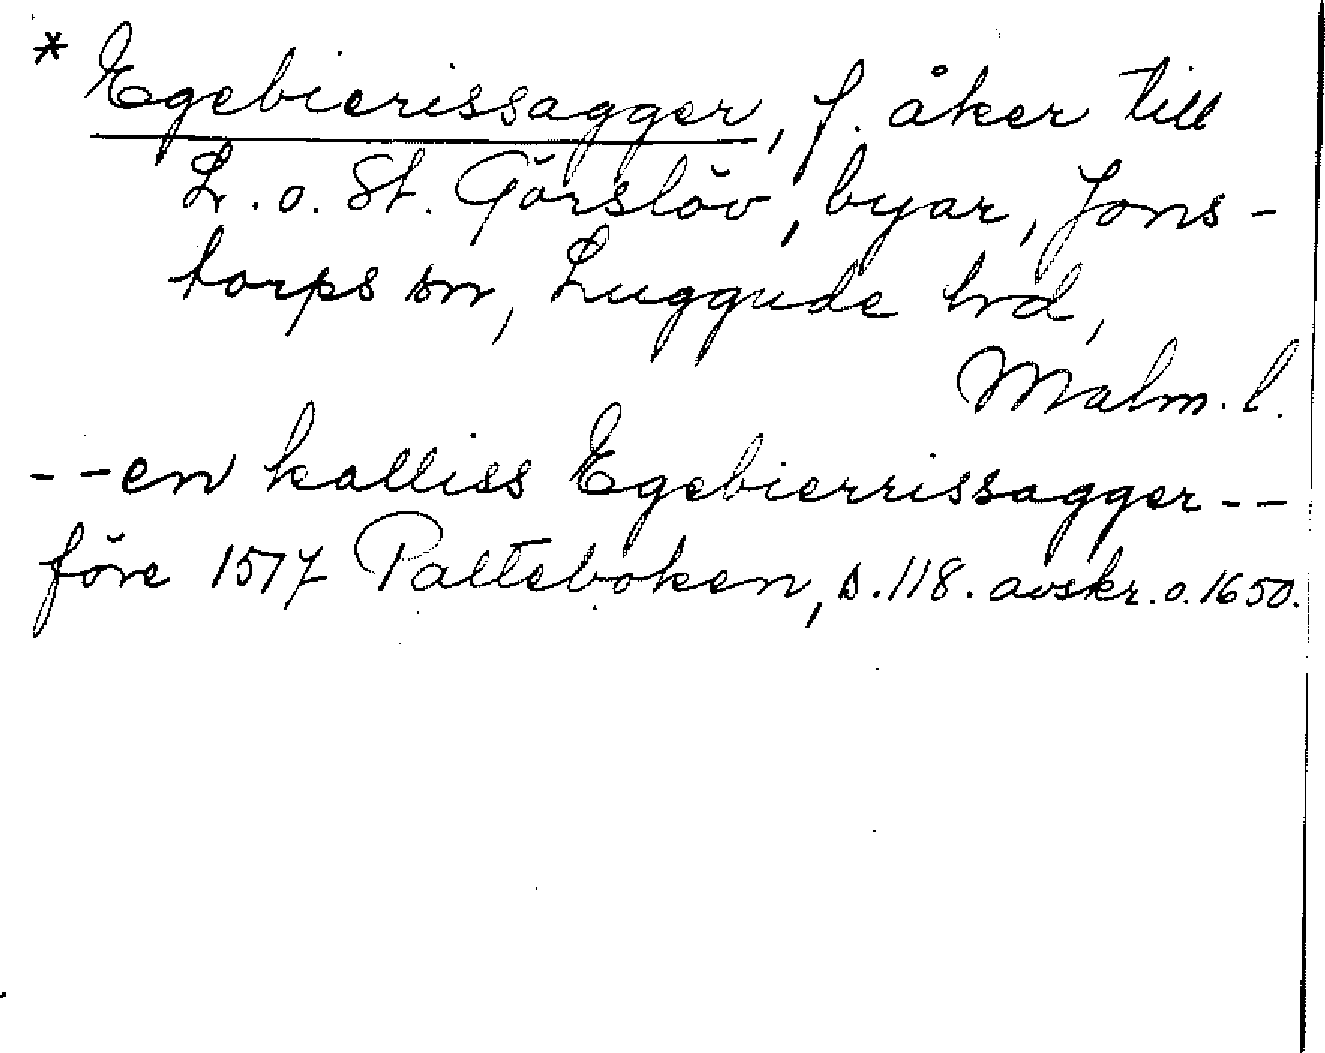 * Egebierissagger, f. åker till
L. o. St. Görslöv, byar, Jons-
torps sn, Luggude hd,
Malm. l.
--en kalliss Egebierrissagger--
före 1517 Palteboken, s. 118. avskr. o. 1650.